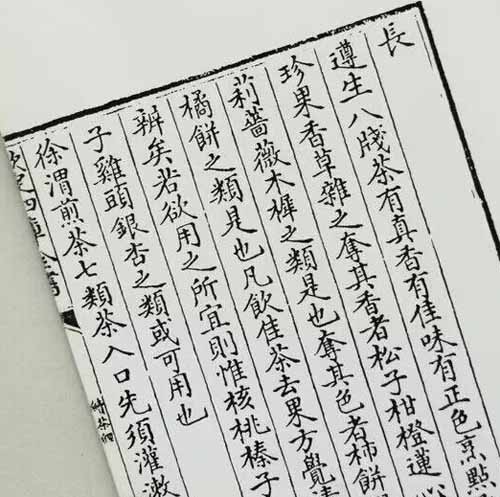 長
遵生八牋茶有真香有佳味有正色烹點
珍果香草雜之奪其香者松子柑橙蓮
莉薔薇木樨之類是也奪其色者柿餅
橘餅之類是也凡飲佳茶去果方覺清
辨矣若欲用之所宜則惟核桃榛子
子雞頭銀杏之類或可用也
徐渭煎茶七類茶入口先須灌漱
欽定四庫全書
續茶經